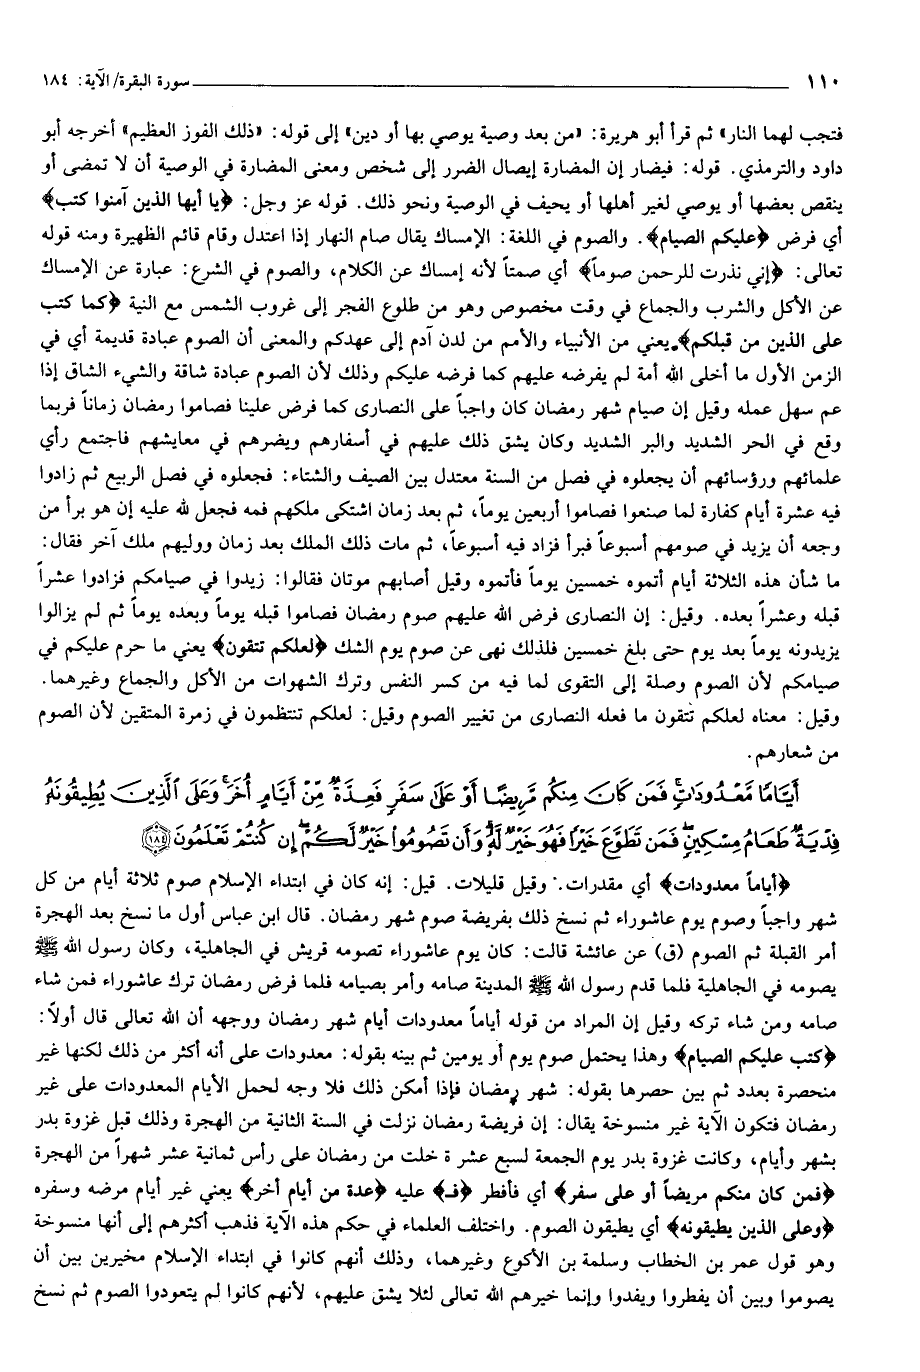 ١١٠ سورة البقرة/ الآية: ١٨٤
فتجب لهما النار» ثم قرأ أبو هريرة: «من بعد وصية يوصي بها أو دين» إلى قوله: «ذلك الفوز العظيم» أخرجه أبو
داود والترمذي. قوله: فيضار إن المضارة إيصال الضرر إلى شخص ومعنى المضارة في الوصية أن لا تمضى أو
ينقص بعضها أو يوصي لغير أهلها أو يحيف في الوصية ونحو ذلك. قوله عز وجل: ﴿يا أيها الذين آمنوا كتب﴾
أي فرض ﴿عليكم الصيام﴾. والصوم في اللغة: الإمساك يقال صام النهار إذا اعتدل وقام قائم الظهيرة ومنه قوله
تعالى: ﴿إني نذرت للرحمن صوماً﴾ أي صمتاً لأنه إمساك عن الكلام، والصوم في الشرع: عبارة عن الإمساك
عن الأكل والشرب والجماع في وقت مخصوص وهو من طلوع الفجر إلى غروب الشمس مع النية ﴿كما كتب
على الذين من قبلكم﴾ يعني من الأنبياء والأمم من لدن آدم إلى عهدكم والمعنى أن الصوم عبادة قديمة أي في
الزمن الأول ما أخلى الله أمة لم يفرضه عليهم كما فرضه عليكم وذلك لأن الصوم عبادة شاقة والشيء الشاق إذا
عم سهل عمله وقيل إن صيام شهر رمضان كان واجباً على النصارى كما فرض علينا فصاموا رمضان زماناً فربما
وقع في الحر الشديد والبر الشديد وكان يشق ذلك عليهم في أسفارهم ويضرهم في معايشهم فاجتمع رأي
علمائهم ورؤسائهم أن يجعلوه في فصل من السنة معتدل بين الصيف والشتاء: فجعلوه في فصل الربيع ثم زادوا
فيه عشرة أيام كفارة لما صنعوا فصاموا أربعين يوماً، ثم بعد زمان اشتكى ملكهم فمه فجعل لله عليه إن هو برأ من
وجعه أن يزيد في صومهم أسبوعاً فبرأ فزاد فيه أسبوعاً، ثم مات ذلك الملك بعد زمان ووليهم ملك آخر فقال:
ما شأن هذه الثلاثة أيام أتموه خمسين يوماً فأتموه وقيل أصابهم موتان فقالوا: زيدوا في صيامكم فزادوا عشراً
قبله وعشراً بعده. وقيل: إن النصارى فرض الله عليهم صوم رمضان فصاموا قبله يوماً وبعده يوماً ثم لم يزالوا
يزيدونه يوماً بعد يوم حتى بلغ خمسين فلذلك نهى عن صوم يوم الشك ﴿لعلكم تتقون﴾ يعني ما حرم عليكم في
صيامكم لأن الصوم وصلة إلى التقوى لما فيه من كسر النفس وترك الشهوات من الأكل والجماع وغيرهما.
وقيل: معناه لعلكم تتقون ما فعله النصارى من تغيير الصوم وقيل: لعلكم تنتظمون في زمرة المتقين لأن الصوم
من شعارهم.
أَيَّامًا مَّعْدُودَاتٍ فَمَن كَانَ مِنكُم مَّرِيضًا أَوْ عَلَىٰ سَفَرٍ فَعِدَّةٌ مِّنْ أَيَّامٍ أُخَرَ وَعَلَى ٱلَّذِينَ يُطِيقُونَهُ
فِدْيَةٌ طَعَامُ مِسْكِينٍ فَمَن تَطَوَّعَ خَيْرًا فَهُوَ خَيْرٌ لَّهُ وَأَن تَصُومُوا خَيْرٌ لَّكُمْ إِن كُنتُمْ تَعْلَمُونَ ﴿١٨٤﴾
﴿أياماً معدودات﴾ أي مقدرات. وقيل قليلات. قيل: إنه كان في ابتداء الإسلام صوم ثلاثة أيام من كل
شهر واجباً وصوم يوم عاشوراء ثم نسخ ذلك بفريضة صوم شهر رمضان. قال ابن عباس أول ما نسخ بعد الهجرة
أمر القبلة ثم الصوم (ق) عن عائشة قالت: كان يوم عاشوراء تصومه قريش في الجاهلية، وكان رسول الله ﷺ
يصومه في الجاهلية فلما قدم رسول الله ﷺ المدينة صامه وأمر بصيامه فلما فرض رمضان ترك عاشوراء فمن شاء
صامه ومن شاء تركه وقيل إن المراد من قوله أياماً معدودات أيام شهر رمضان ووجهه أن الله تعالى قال أولاً:
﴿كتب عليكم الصيام﴾ وهذا يحتمل صوم يوم أو يومين ثم بينه بقوله: معدودات على أنه أكثر من ذلك لكنها غير
منحصرة بعدد ثم بين حصرها بقوله: شهر رمضان فإذا أمكن ذلك فلا وجه لحمل الأيام المعدودات على غير
رمضان فتكون الآية غير منسوخة يقال: إن فريضة رمضان نزلت في السنة الثانية من الهجرة وذلك قبل غزوة بدر
بشهر وأيام، وكانت غزوة بدر يوم الجمعة لسبع عشر ة خلت من رمضان على رأس ثمانية عشر شهراً من الهجرة
﴿فمن كان منكم مريضاً أو على سفر﴾ أي فأفطر ﴿فـ﴾ عليه ﴿عدة من أيام أخر﴾ يعني غير أيام مرضه وسفره
﴿وعلى الذين يطيقونه﴾ أي يطيقون الصوم. واختلف العلماء في حكم هذه الآية فذهب أكثرهم إلى أنها منسوخة
وهو قول عمر بن الخطاب وسلمة بن الأكوع وغيرهما، وذلك أنهم كانوا في ابتداء الإسلام مخيرين بين أن
يصوموا وبين أن يفطروا ويفدوا وإنما خيرهم الله تعالى لئلا يشق عليهم، لأنهم كانوا لم يتعودوا الصوم ثم نسخ